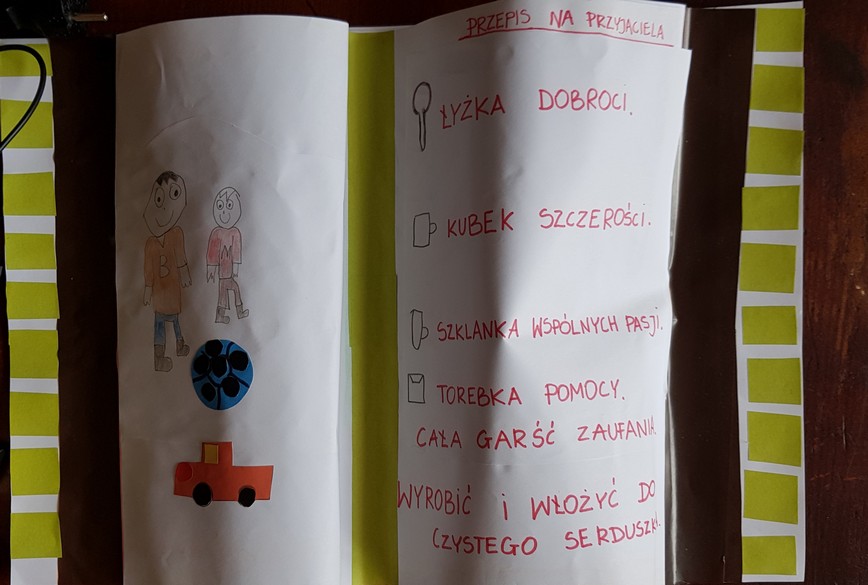 PRZEPIS NA PRZYJACIELA
ŁYŻKA DOBROCI.
KUBEK SZCZEROŚCI.
SZKLANKA WSPÓLNYCH PASJI.
TOREBKA POMOCY.
CAŁA GARŚĆ ZAUFANIA.
WYROBIĆ I WŁOŻYĆ DO
CZYSTEGO SERDUSZKA.
B
M